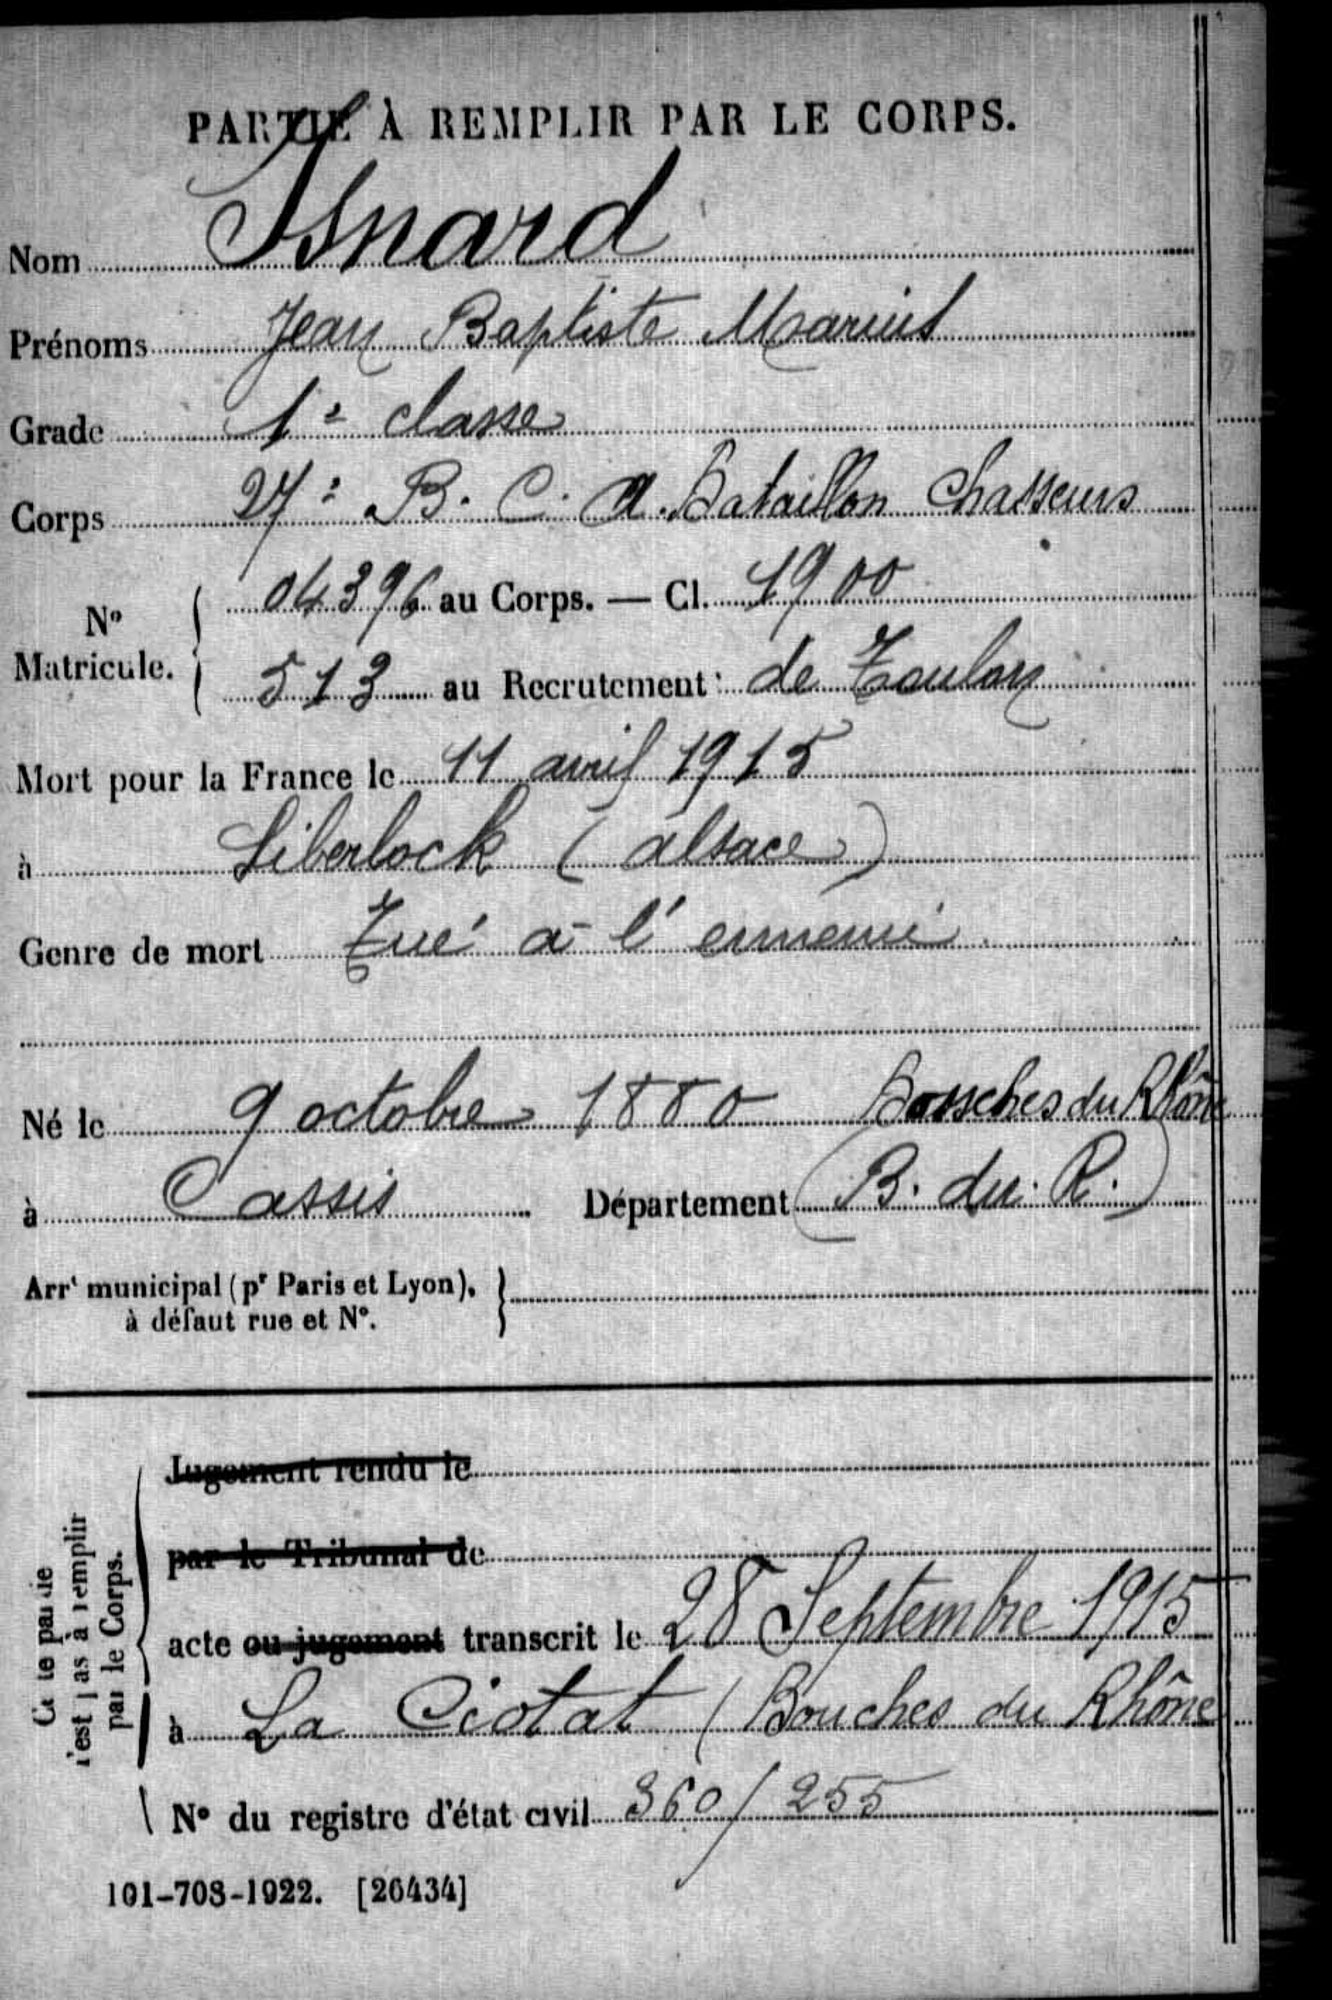 PARTIE À REMPLIR PAR LE CORPS.
Nom Isnard
Prénoms Jean Baptiste Marius
Grade 1e classe
Corps 27e B. C. A. Bataillon Chasseurs
No Matricule. 04396 au Corps. — Cl. 1900
513 au Recrutement de Toulon
Mort pour la France le 11 avril 1915
à Siberlock (alsace)
Genre de mort Tué à l'ennemi
Né le 9 octobre 1880 Bouches du Rhône
à Cassis Département (B. du. R.)
Arrt municipal (pr Paris et Lyon),
à défaut rue et N°.
Cette partie
n'est pas à remplir
par le Corps.
Jugement rendu le
par le Tribunal de
acte ou jugement transcrit le 28 Septembre 1915
à La Ciotat (Bouches du Rhône
N° du registre d'état civil 360/255
101-708-1922. [26434]